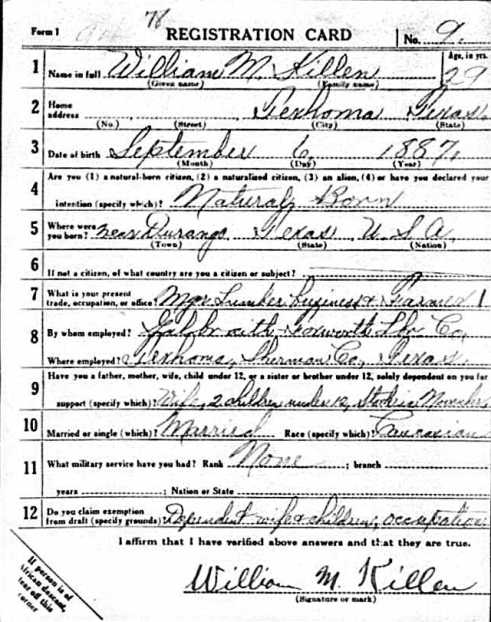 78
Form 1 REGISTRATION CARD No. 9.
1 Name in full William M. Killen Age, in yrs. 29
(Given name) (Family name)
2 Home address Texhoma Texas
(No.) (Street) (City) (State)
3 Date of birth September 6 1887
(Month) (Day) (Year)
4 Are you (1) a natural-born citizen, (2) a naturalized citizen, (3) an alien, (4) or have you declared your
intention (specify which)? Natural Born
5 Where were you born? near Durango Texas U S A
(Town) (State) (Nation)
6 If not a citizen, of what country are you a citizen or subject?
7 What is your present trade, occupation, or office? Mgr Lumber business &
8 By whom employed? Galbraith Foxworth Lbr Co,
Where employed? Texhoma, Sherman Co, Texas
9 Have you a father, mother, wife, child under 12, or a sister or brother under 12, solely dependent on you for
support (specify which)? Wife, 2 children under 12,
10 Married or single (which)? Married Race (specify which)? Caucasian
11 What military service have you had? Rank None ; branch
years ; Nation or State
12 Do you claim exemption from draft (specify grounds)? Dependent wife & children; occupation
I affirm that I have verified above answers and that they are true.
William M. Killen
(Signature or mark)
If person is of
African descent,
tear off this
corner